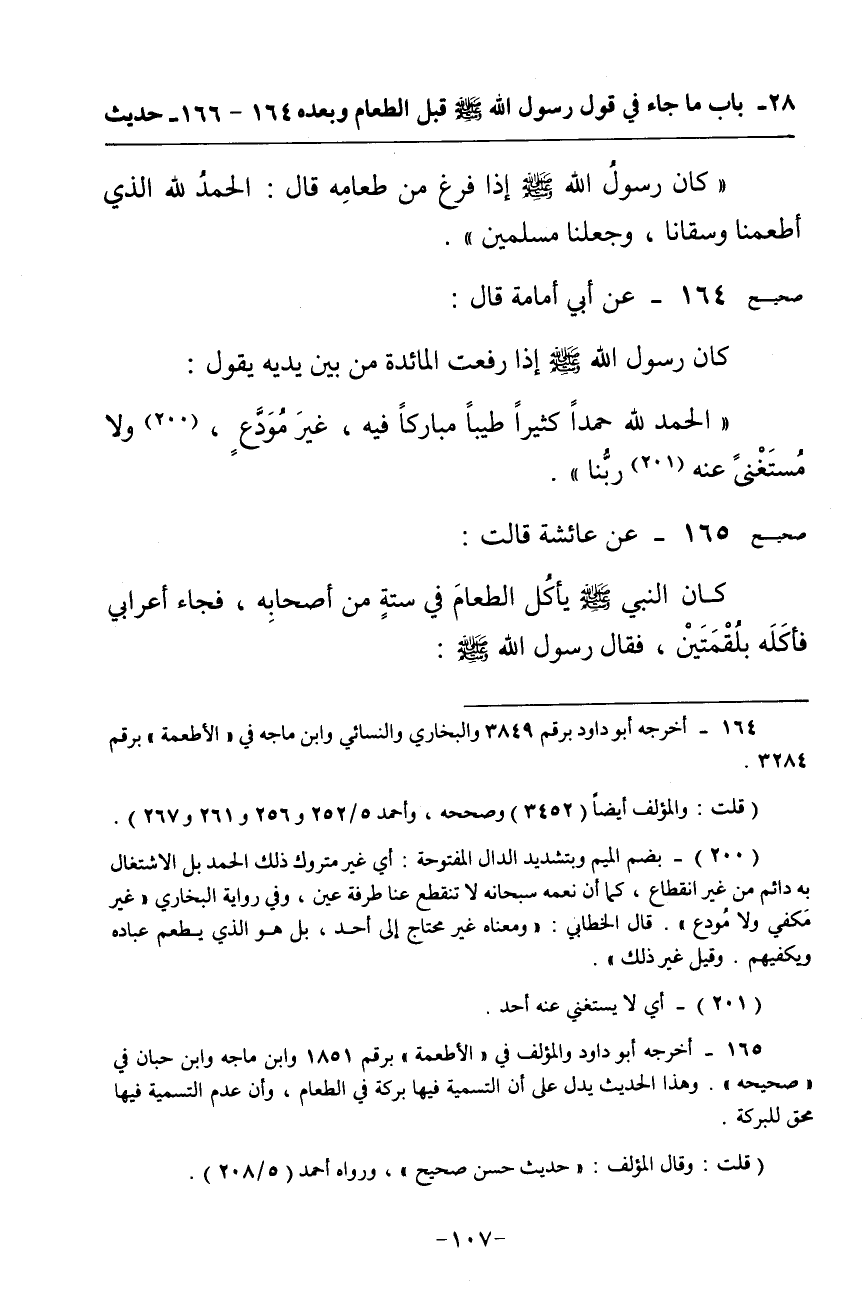 ٢٨ـ باب ما جاء في قول رسول الله ﷺ قبل الطعام وبعده ١٦٤ - ١٦٦ـ حديث
« كان رسولُ الله ﷺ إذا فرغ من طعامِه قال : الحمدُ لله الذي
أطعمنا وسقانا ، وجعلنا مسلمين » .
صحيح ١٦٤ - عن أبي أمامة قال :
كان رسول الله ﷺ إذا رفعت المائدة من بين يديه يقول :
« الحمد لله حمداً كثيراً طيباً مباركاً فيه ، غيرَ مُوَدَّعٍ ، (٢٠٠) ولا
مُستَغْنىً عنه (٢٠١) ربُّنا » .
صحيح ١٦٥ - عن عائشة قالت :
كان النبي ﷺ يأكُل الطعامَ في ستةٍ من أصحابِه ، فجاء أعرابي
فأكَلَه بلُقْمَتَيْن ، فقال رسول الله ﷺ :
١٦٤ - أخرجه أبو داود برقم ٣٨٤٩ والبخاري والنسائي وابن ماجه في « الأطعمة » برقم
٣٢٨٤ .
( قلت : والمؤلف أيضاً ( ٣٤٥٢ ) وصححه ، وأحمد ٢٥٢/٥ و ٢٥٦ و ٢٦١ و ٢٦٧ ) .
( ٢٠٠ ) - بضم الميم وبتشديد الدال المفتوحة : أي غير متروك ذلك الحمد بل الاشتغال
به دائم من غير انقطاع ، كما أن نعمه سبحانه لا تنقطع عنا طرفة عين ، وفي رواية البخاري « غير
مَكفي ولا مُودع » . قال الخطابي : « ومعناه غير محتاج إلى أحد ، بل هو الذي يطعم عباده
ويكفيهم . وقيل غير ذلك » .
( ٢٠١ ) - أي لا يستغني عنه أحد .
١٦٥ - أخرجه أبو داود والمؤلف في « الأطعمة » برقم ١٨٥١ وابن ماجه وابن حبان في
« صحيحه » . وهذا الحديث يدل على أن التسمية فيها بركة في الطعام ، وأن عدم التسمية فيها
محق للبركة .
( قلت : وقال المؤلف : « حديث حسن صحيح » ، ورواه أحمد ( ٢٠٨/٥ ) .
-١٠٧-